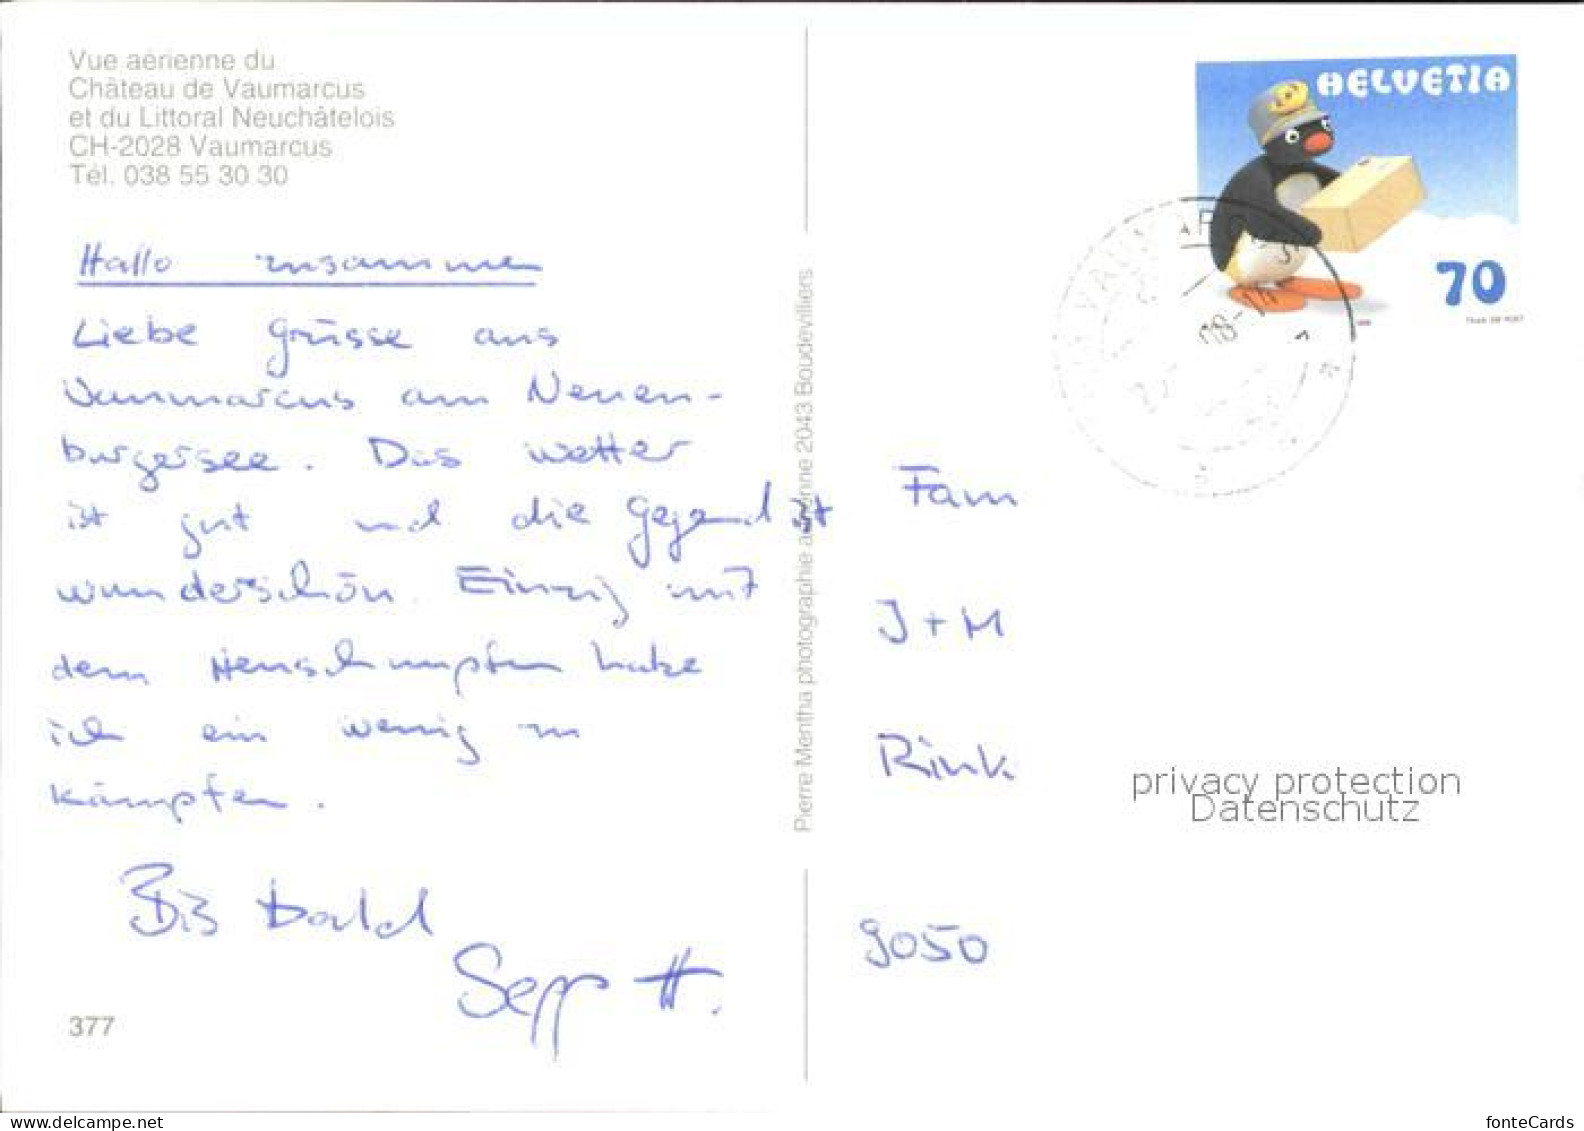 Vue aérienne du
Château de Vaumarcus
et du Littoral Neuchâtelois
CH-2028 Vaumarcus
Tél. 038 55 30 30
Hallo zusammen
Liebe Grüsse aus
Vaumarcus am Neuen-
burgersee. Das Wetter
ist gut und die Gegend ist
wunderschön. Einzig mit
dem Heuschnupfen habe
ich ein wenig zu
kämpfen.
Bis bald
Sepp H.
377
Pierre Mentha photographie aérienne 2043 Boudevilliers
HELVETIA
70
Fam
J + M
Rink
9050
privacy protection
Datenschutz
fonteCards